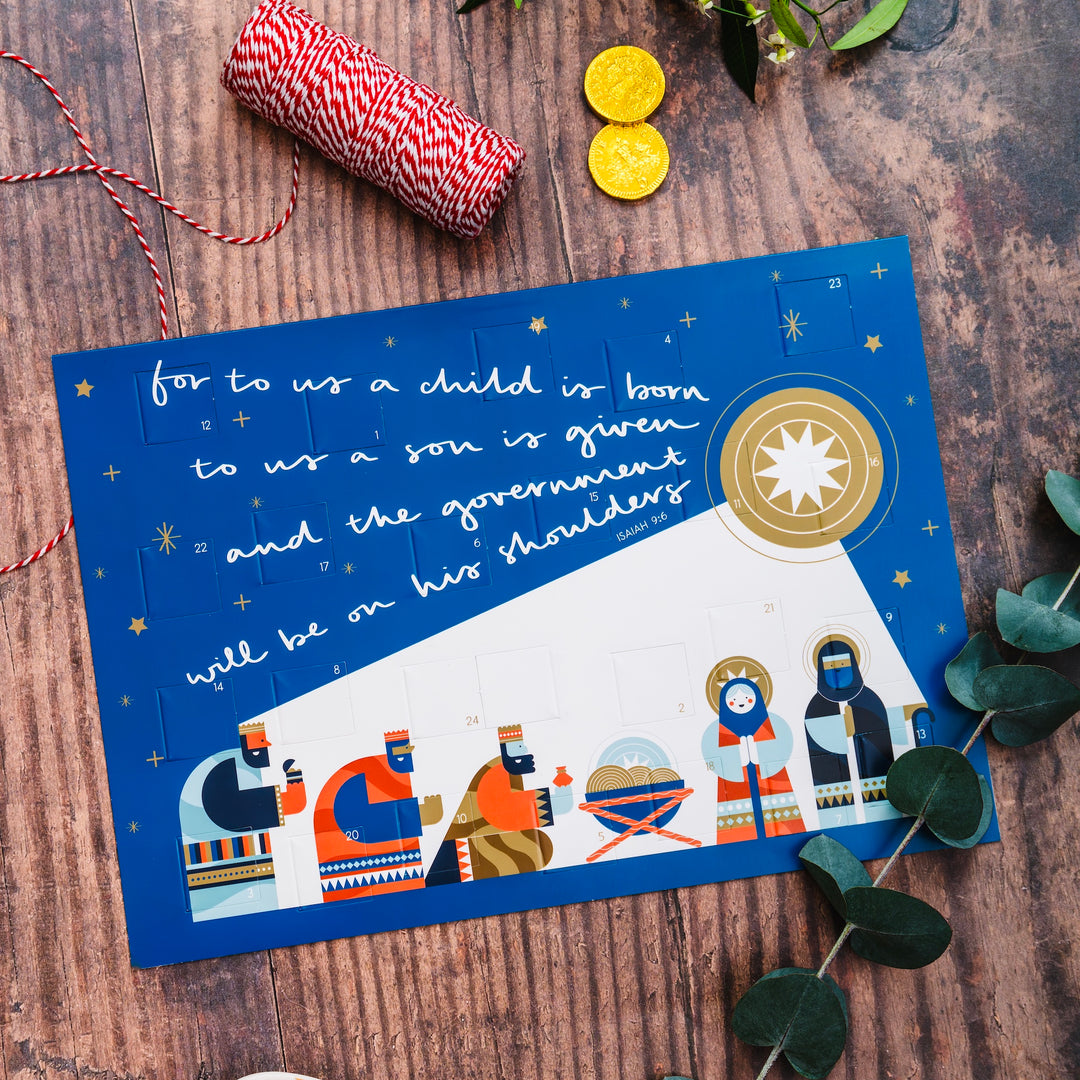 for to us a child is born
to us a son is given
and the government
will be on his shoulders
ISAIAH 9:6
23
19
4
12
1
16
11
15
6
22
17
21
9
14
8
24
2
13
18
20
10
5
7
3